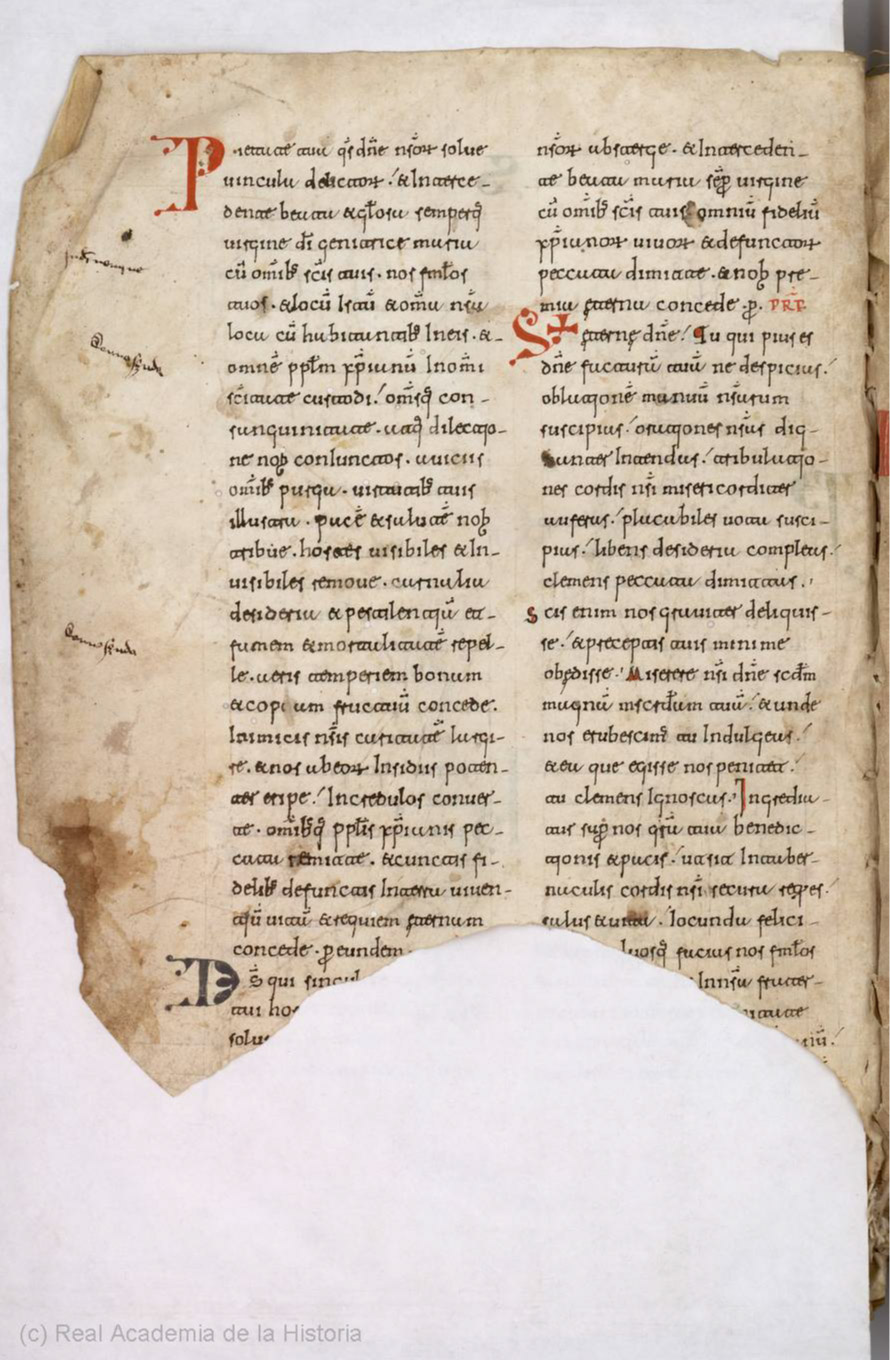 Pietate tua q̄s dn̄e nr̄oꝝ solue
uincula delictoꝝ. & Interce-
dente beata & gl̄osa semperq;
uirgine dī genitrice maria
cū omib; scīs tuis. nos fml̄os
tuos. & locū Istū & om̄a nr̄a
loca cū habitantib; In eis. &-
omnē ppl̄m xp̄ianū In omī
scītate custodi. om̄sq; con-
sanguinitate. dilectio-
ne nob coniunctos. a uiciis
omīb; purga. uirtutib; tuis
illustra. pacē & salutē nob
tribue. hostes uisibiles & In-
uisibiles remoue. carnalia
desideria & pestilentiā et-
famem & mortalitatē repel-
le. ueris temperiem bonam
& copiam fructuū concede.
Inimicis nr̄is caritatē largi-
re. & nos ab eoꝝ Insidiis poten-
ter eripe. Incredulos conuer-
te. omībq; ppl̄is xp̄ianis pec-
cata remitte. & cunctis fi-
delib; defunctis In terra uiuen-
tiū uitā & requiem ęternam
concede. ꝑ eundem
Ds̄ qui singul
tui hos
solu
nr̄oꝝ absterge. & Intercedenti-
te beata maria sēꝑ uirgine
cū omīb; scīs tuis omniū fideliū
xp̄ianoꝝ uiuoꝝ & defunctoꝝ
peccata dimitte. & nob pre-
mia ęterna concede. ꝑ. PRF̄
ęterne dn̄e. Tu qui pius es
dn̄e facturā tuā ne despicias.
oblationē manuū nr̄arum
suscipias. orationes nr̄as dig-
nanter Intendas. tribulatio-
nes cordis nr̄i misericorditer
auferas. placabiles uota susci-
pias. libens desideria compleas.
clemens peccata dimittas.
Scis enim nos grauiter deliquis-
se. & preceptis tuis minime
obędisse. Miserere nr̄i dn̄e scd̄m
magnā mscrd̄iam tuā. & unde
nos erubescim̄ tu Indulgeas.
& ea que egisse nos penitet.
tu clemens Ignoscas. Ingredia-
tur suꝑ nos grā tua benedic-
tionis & pacis. uasta In taber-
naculis cordis nr̄i secura reges.
salus & uita. Iocunda felici-
luosq; facias nos fml̄os
Innr̄a frater-